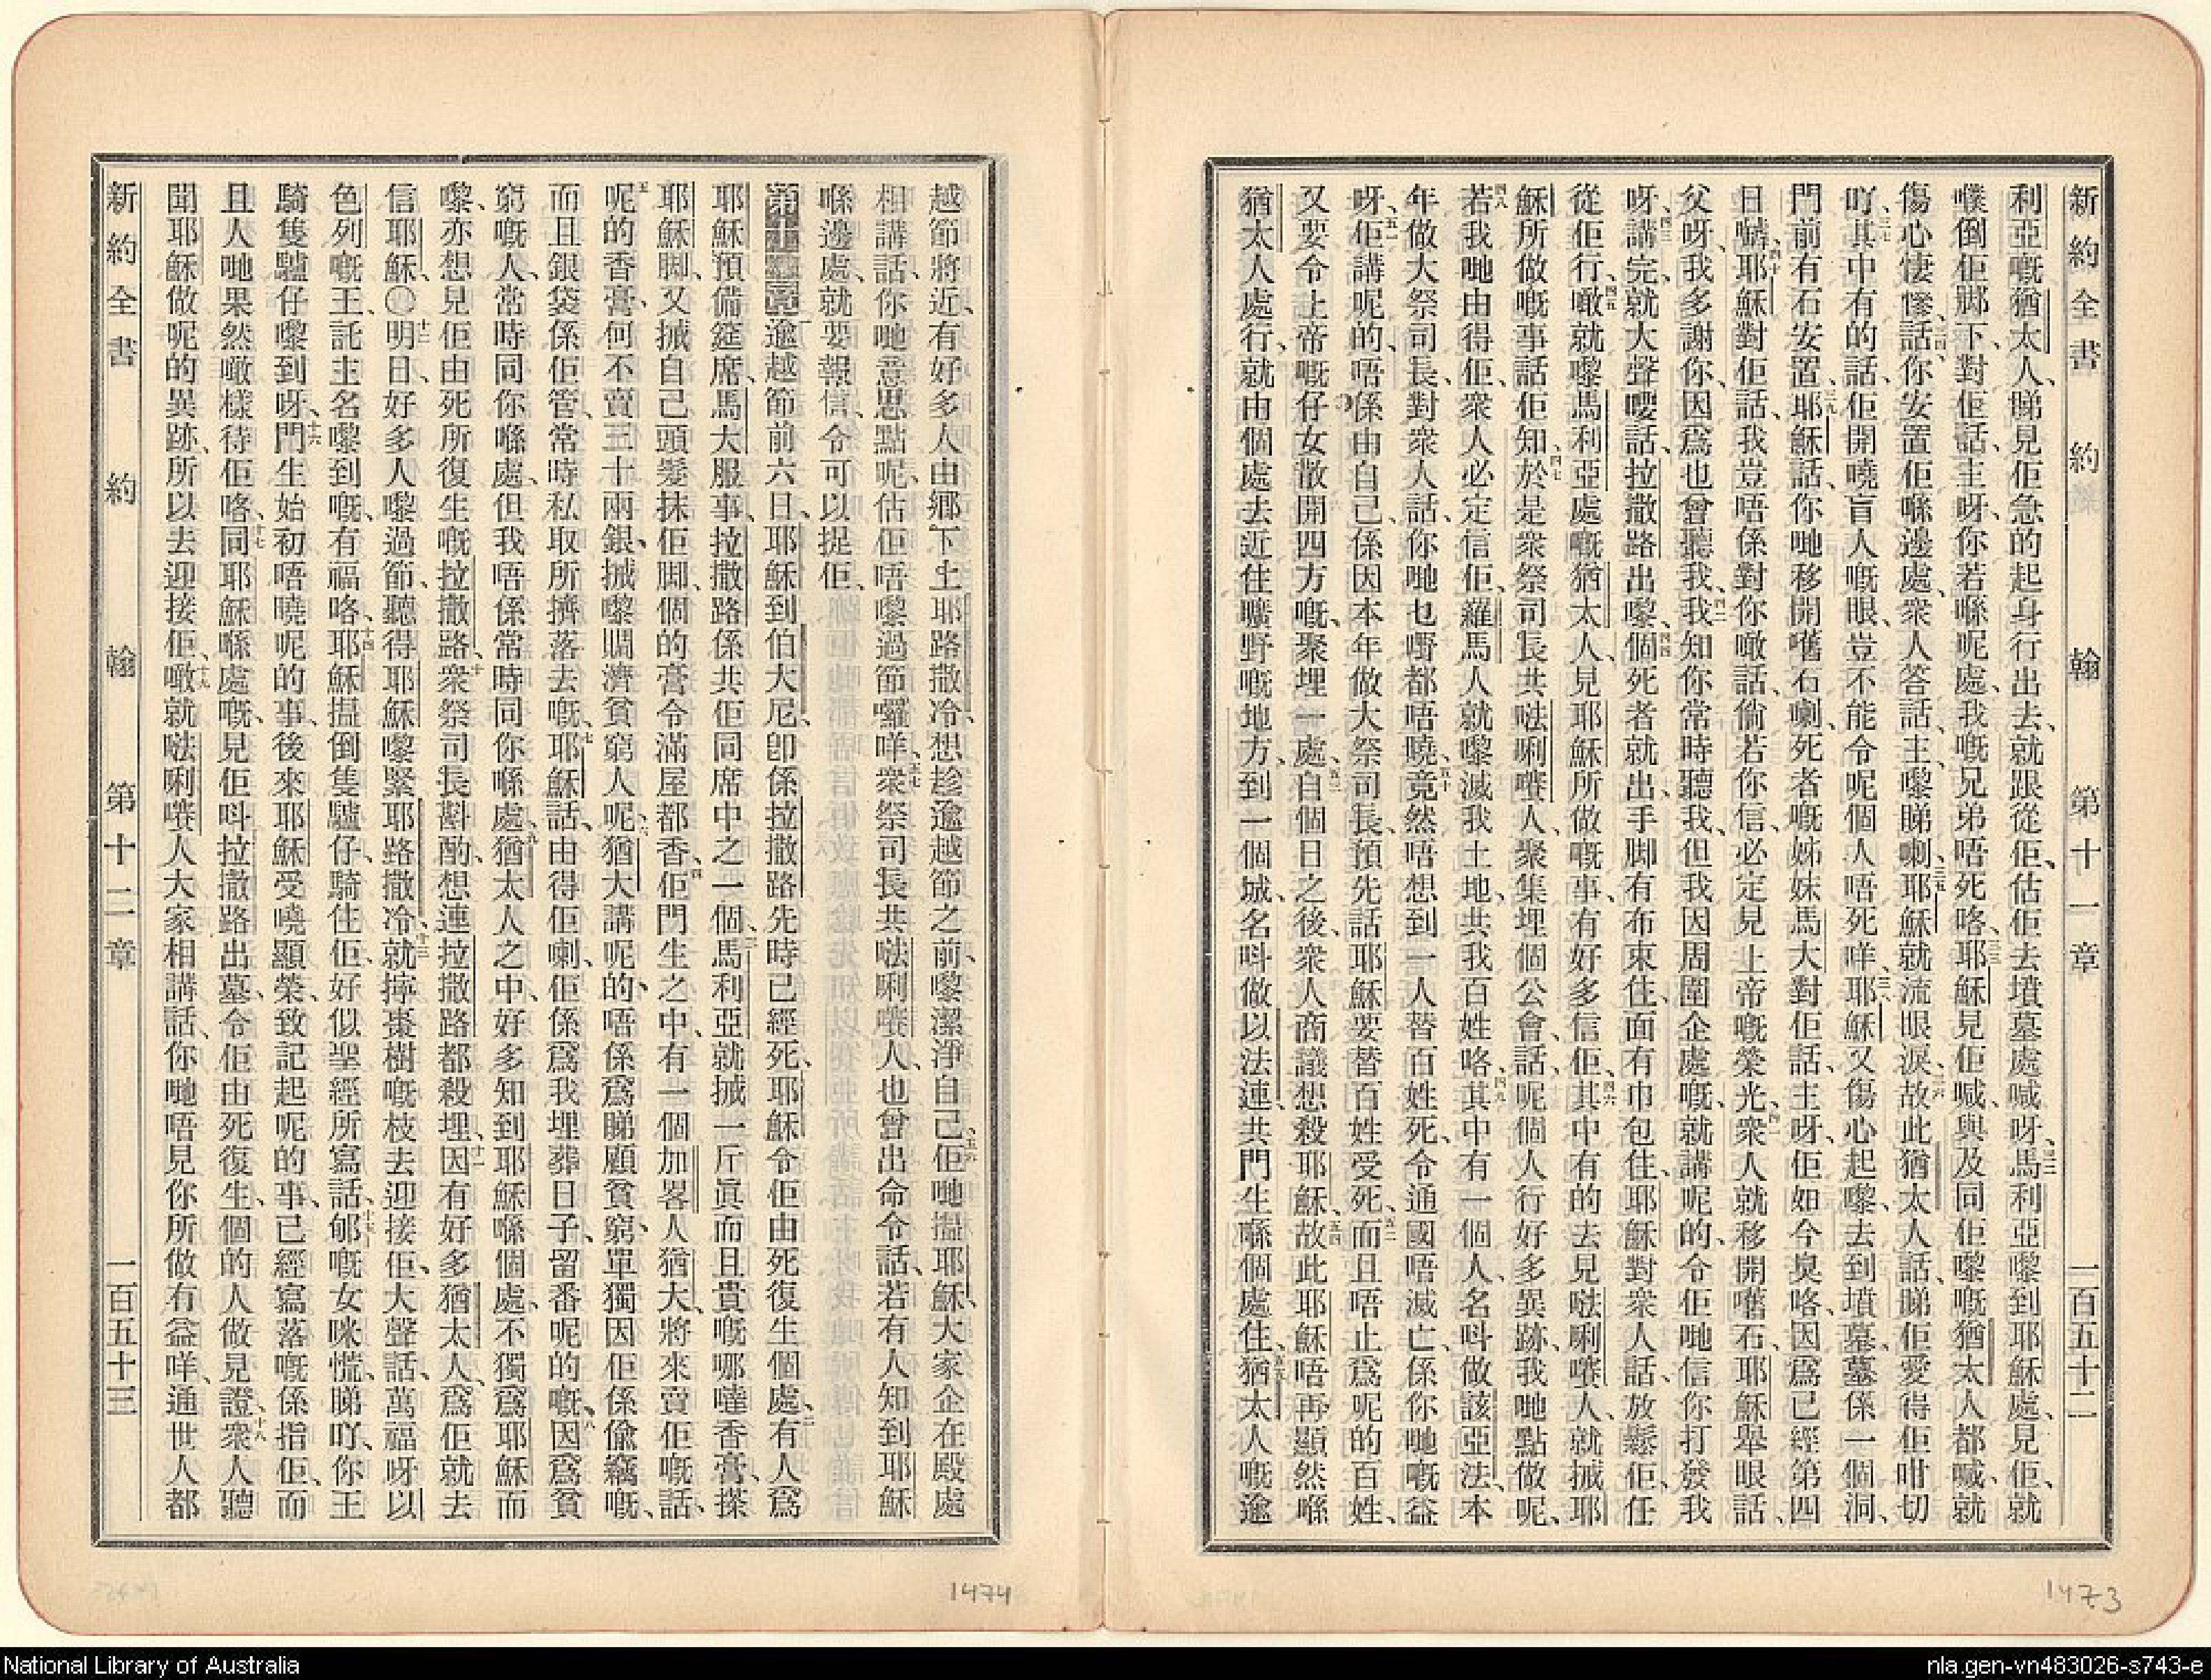 新約全書 約翰 第十一章 一百五十二
利亞嘅猶太人、睇見佢急的起身行出去、就跟從佢、估佢去墳墓處喊呀、馬利亞嚟到耶穌處、見佢、就
噗倒佢脚下、對佢話、主呀、你若喺呢處、我嘅兄弟唔死咯、耶穌見佢喊、與及同佢嚟嘅猶太人都喊、就
傷心悽慘、話、你安置佢喺邊處、衆人答話、主、嚟睇喇、耶穌就流眼淚、故此猶太人話、睇佢愛得佢咁切
吖、其中有的話、佢開曉盲人嘅眼、豈不能令呢個人唔死咩、耶穌又傷心起嚟、去到墳墓、墓係一個洞、
門前有石安置、耶穌話、你哋移開嚿石喇、死者嘅姊妹馬大對佢話、主呀、佢如今臭咯、因爲已經第四
日嚹、耶穌對佢話、我豈唔係對你噉話、倘若你信、必定見上帝嘅榮光、衆人就移開嚿石、耶穌舉眼話、
父呀、我多謝你、因爲也曾聽我、我知你常時聽我、但我因周圍企處嘅、就講呢的、令佢哋信你打發我
呀、講完、就大聲嘤話、拉撒路出嚟、個死者就出、手脚有布束住、面有巾包住、耶穌對衆人話、放鬆佢、任
從佢行、噉就嚟馬利亞處嘅猶太人、見耶穌所做嘅事、有好多信佢、其中有的去見𠵽唎㘔人、就搣耶
穌所做嘅事話佢知、於是衆祭司長共𠵽唎㘔人、聚集埋個公會、話、呢個人行好多異跡、我哋點做呢、
若我哋由得佢、衆人必定信佢、羅馬人就嚟滅我土地、共我百姓咯、其中有一個人、名呌做該亞法、本
年做大祭司長、對衆人話、你哋也嘢都唔曉、竟然唔想到一人替百姓死、令通國唔滅亡、係你哋嘅益
呀、佢講呢的、唔係由自己、係因本年做大祭司長、預先話耶穌要替百姓受死、而且唔止爲呢的百姓、
又要令上帝嘅仔女散開四方嘅、聚埋一處、自個日之後、衆人商議想殺耶穌、故此耶穌唔再顯然喺
猶太人處行、就由個處去近住曠野嘅地方、到一個城、名呌做以法連、共門生喺個處住、猶太人嘅逾
越節將近、有好多人由鄉下上耶路撒冷、想趁逾越節之前、嚟潔淨自己、佢哋揾耶穌、大家企在殿處
相講話、你哋意思點呢、估佢唔嚟過節囉咩、衆祭司長共𠵽唎㘔人、也曾出命令話、若有人知到耶穌
喺邊處、就要報信、令可以捉佢、
第十二章 逾越節前六日、耶穌到伯大尼、卽係拉撒路先時已經死、耶穌令佢由死復生個處、有人爲
耶穌預備筵席、馬大服事、拉撒路係共佢同席中之一個、馬利亞就搣一斤眞而且貴嘅哪噠香膏、搽
耶穌脚、又搣自己頭髮抹佢脚、個的膏令滿屋都香、佢門生之中、有一個加畧人猶大、將來賣佢嘅、話、
呢的香膏、何不賣三十兩銀、搣嚟賙濟貧窮人呢、猶大講呢的、唔係爲睇顧貧窮、單獨因佢係偸竊嘅、
而且銀袋係佢管、常時私取所擠落去嘅、耶穌話、由得佢喇、佢係爲我埋葬日子、留番呢的嘅、因爲貧
窮嘅人、常時同你喺處、但我唔係常時同你喺處、猶太人之中、好多知到耶穌喺個處、不獨爲耶穌而
嚟、亦想見佢由死所復生嘅拉撒路、衆祭司長斟酌、想連拉撒路都殺埋、因有好多猶太人、爲佢就去
信耶穌、○明日、好多人嚟過節、聽得耶穌嚟緊耶路撒冷、就擰棗樹嘅枝去迎接佢、大聲話、萬福呀、以
色列嘅王、託主名嚟到嘅、有福咯、耶穌揾倒隻驢仔、騎住佢、好似聖經所寫話、郇嘅女咪慌、睇吖、你王
騎隻驢仔嚟到呀、門生始初唔曉呢的事、後來耶穌受曉顯榮、致記起呢的事、已經寫落嘅係指佢、而
且人哋果然噉樣待佢咯、同耶穌喺處嘅、見佢呌拉撒路出墓、令佢由死復生、個的人做見證、衆人聽
聞耶穌做呢的異跡、所以去迎接佢、噉就𠵽唎㘔人大家相講話、你哋唔見你所做有益咩、通世人都
新約全書 約翰 第十二章 一百五十三
1474
1473
National Library of Australia
nla.gen-vn483026-s743-e